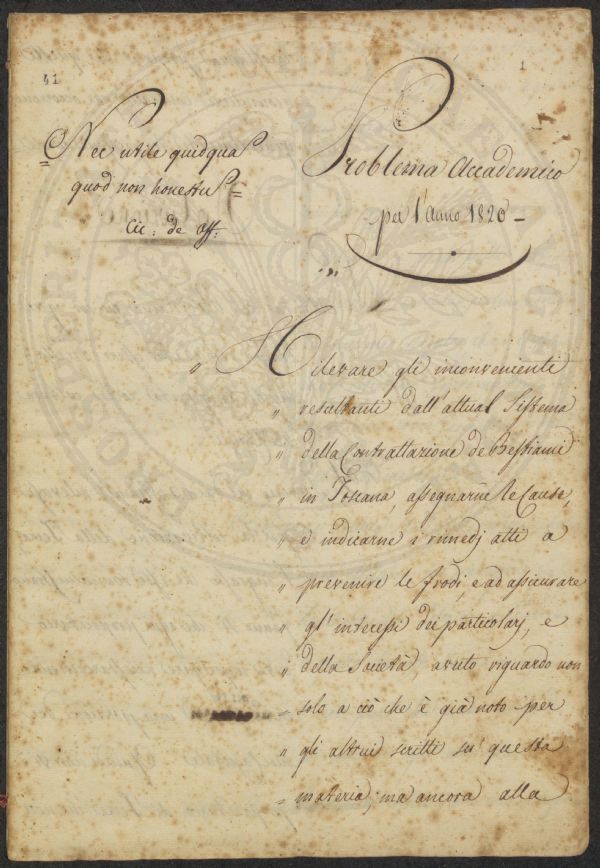 41
1
Nec utile quidquã
quod non honestũ =
Cic: de off:
Problema Accademico
per l'Anno 1820 –
„ Rilevare gli inconvenienti
„ resultanti dall'attual Sistema
„ della Contrattazione de Bestiami
„ in Toscana, assegnarne le Cause,
„ e indicarne i rimedj atti a
„ prevenire le frodi, e ad assicurare
„ gl'interessi dei particolarj, e
„ della Società, avuto riguardo non
„ solo a ciò che è già noto per
„ gli altrui scritti su' questa
„ materia, ma ancora alla